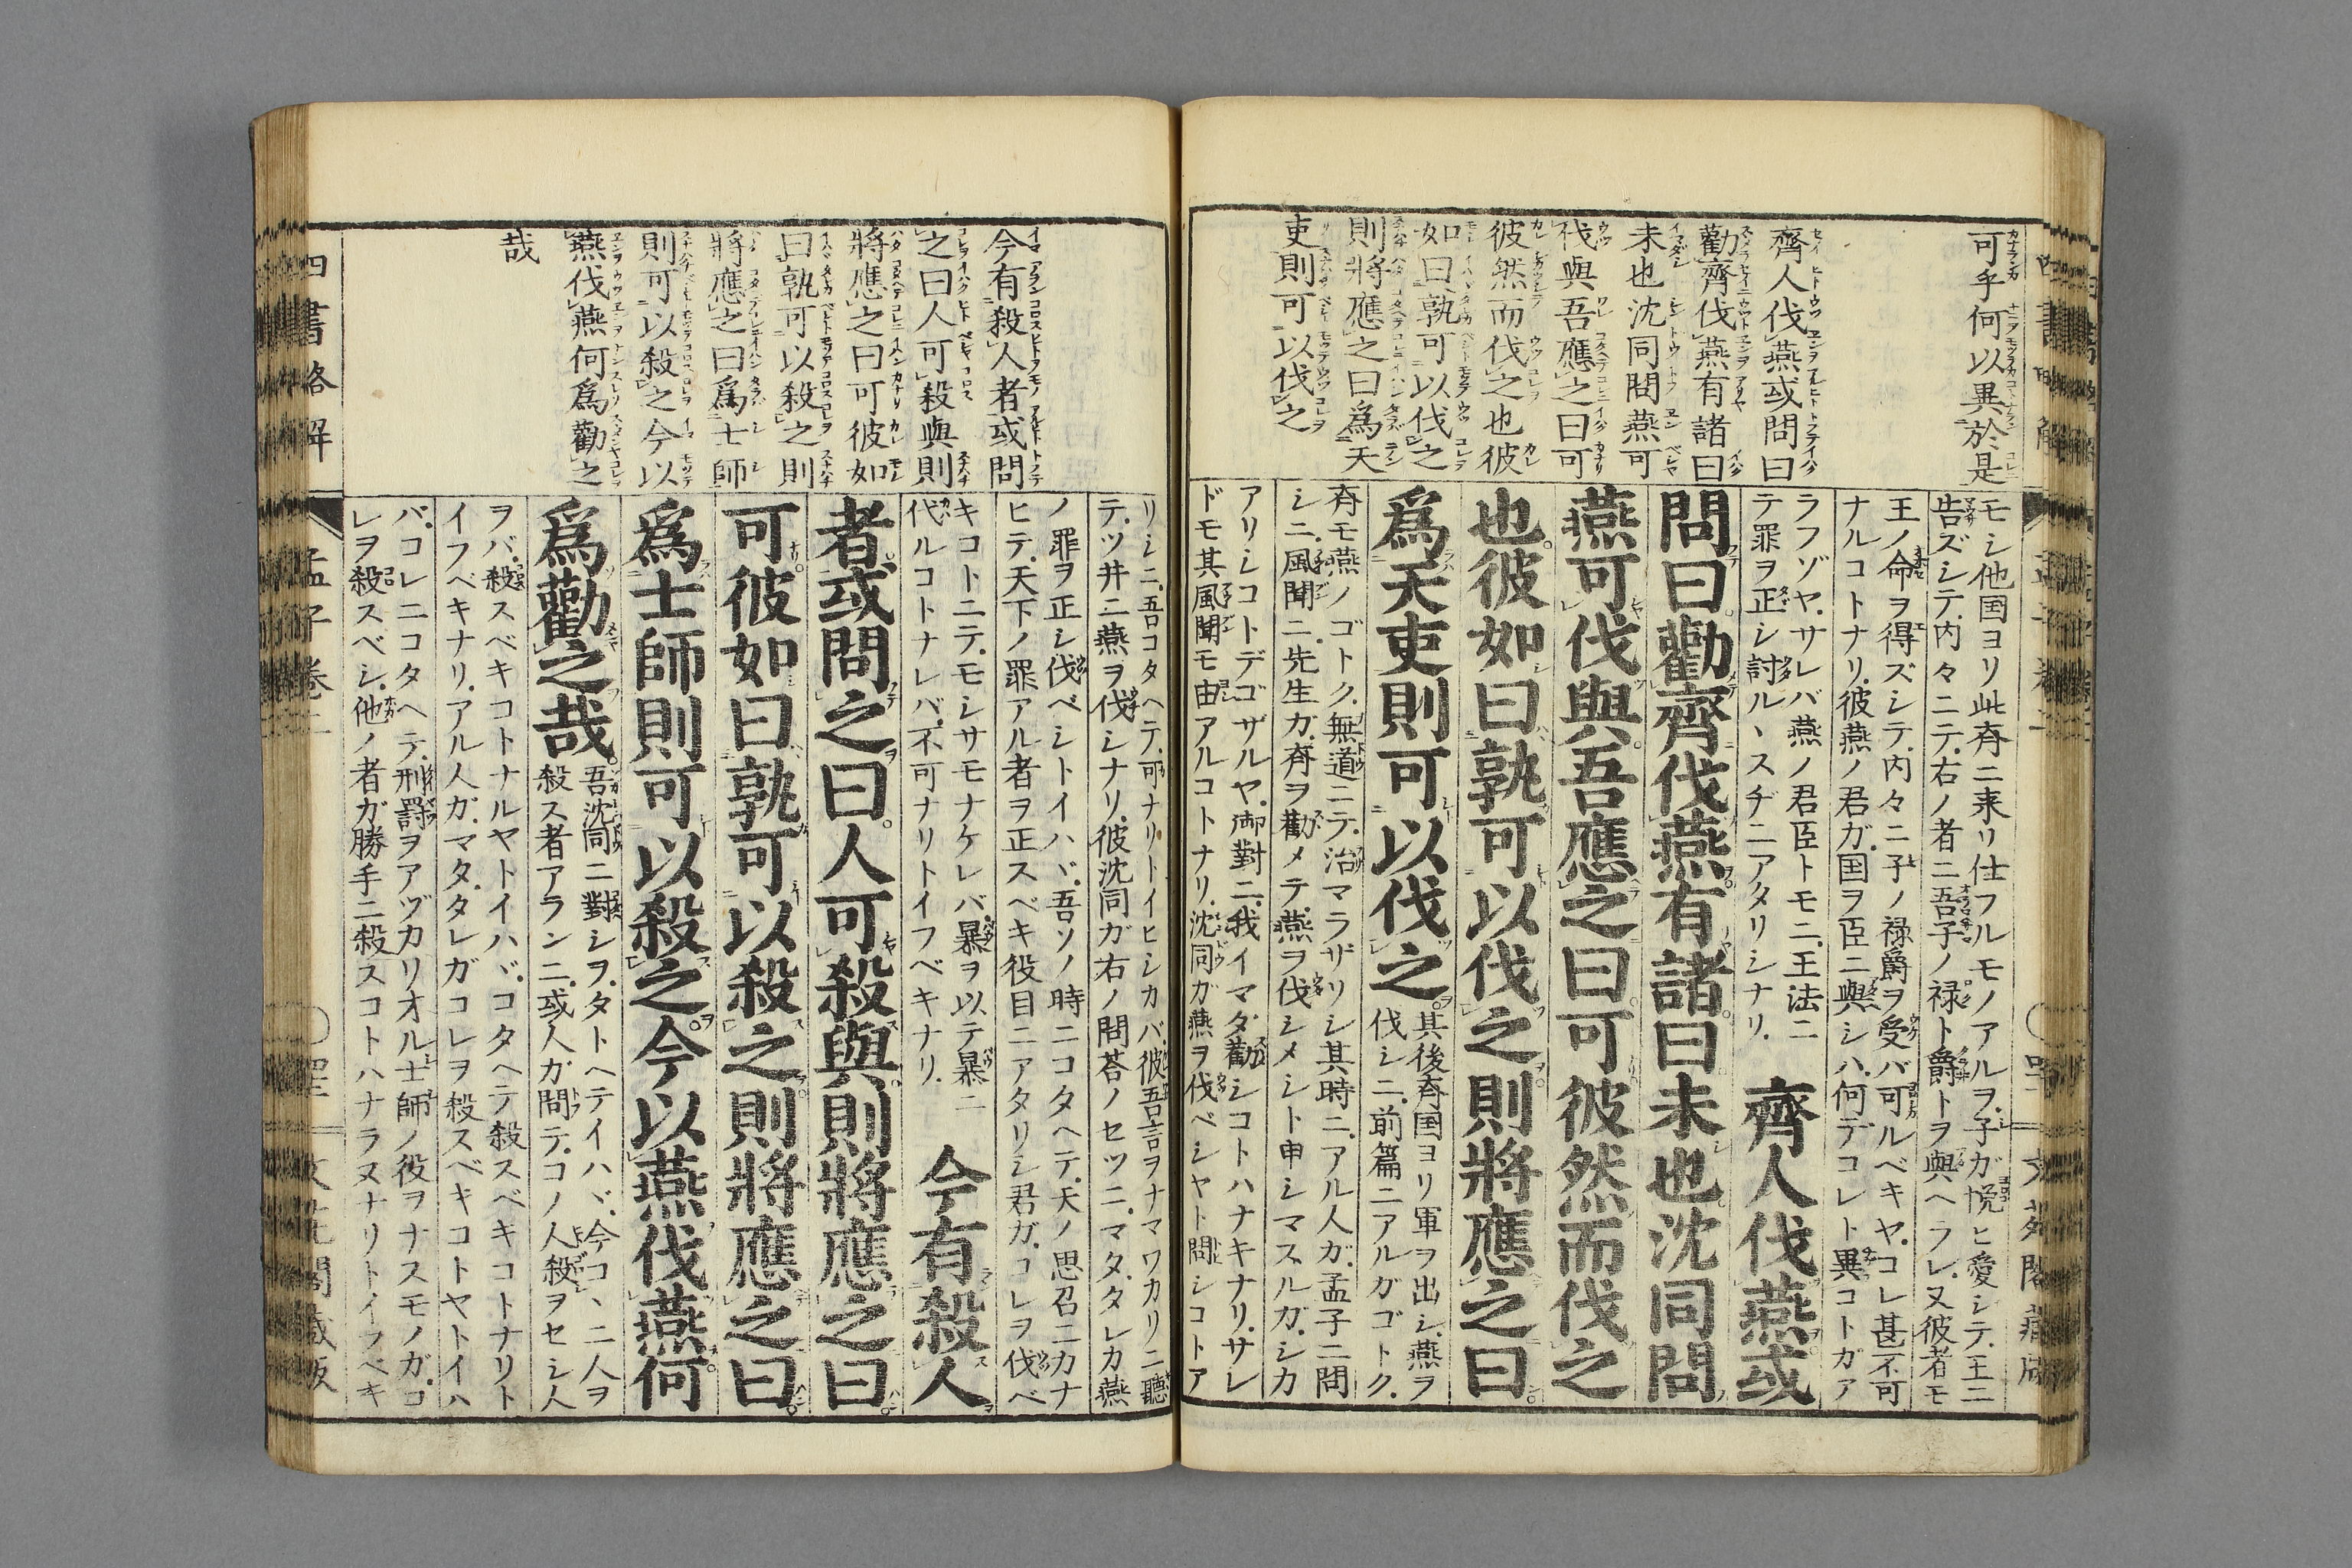 可乎何以異於是
齊人伐燕或問曰
勸齊伐燕有諸曰
未也沈同問燕可
伐與吾應之曰可
彼然而伐之也彼
如曰孰可以伐之
則將應之曰爲天
吏則可以伐之
モシ他国ヨリ此斉ニ来リ仕フルモノアルヲ子ガ悦ヒ愛シテ王ニ
告ズシテ内々ニテ右ノ者ニ吾子ノ禄ト爵トヲ與ヘラレ又彼者モ
王ノ命ヲ得ズシテ内々ニ子ノ禄爵ヲ受バ可ルベキヤコレ甚不可
ナルコトナリ彼燕ノ君ガ国ヲ臣ニ與シハ何デコレト異コトガア
ラフゾヤサレバ燕ノ君臣トモニ王法ニ
テ罪ヲ正シ討ルヽスヂニアタリシナリ
齊人伐燕或
問曰勸齊伐燕有諸曰未也沈同問
燕可伐與吾應之曰可彼然而伐之
也彼如曰孰可以伐之則將應之曰
爲天吏則可以伐之
其後斉国ヨリ軍ヲ出シ燕ヲ
伐シニ前篇ニアルガゴトク
斉モ燕ノゴトク無道ニテ治マラザリシ其時ニアル人ガ孟子ニ問
シニ風聞ニ先生ガ斉ヲ勸メテ燕ヲ伐シメシト申シマスルガシカ
アリシコトデゴザルヤ御對ニ我イマダ勸シコトハナキナリサレ
ドモ其風聞モ由アルコトナリ沈同ガ燕ヲ伐ベシヤト問シコトア
今有殺人者或問
之曰人可殺與則
將應之曰可彼如
曰孰可以殺之則
將應之曰爲士師
則可以殺之今以
燕伐燕何爲勸之
哉
リシニ吾コタヘテ可ナリトイヒシカバ彼吾言ヲナマワカリニ聽
テツ井ニ燕ヲ伐シナリ彼沈同ガ右ノ問荅ノセツニマタタレカ燕
ノ罪ヲ正シ伐ベシトイハヾ吾ソノ時ニコタヘテ天ノ思召ニカナ
ヒテ天下ノ罪アル者ヲ正スベキ役目ニアタリシ君ガコレヲ伐ベ
キコトニテモシサモナケレバ暴ヲ以テ暴ニ
代ルコトナレバ不可ナリトイフベキナリ
今有殺人
者或問之曰人可殺與則將應之曰
可彼如曰孰可以殺之則將應之曰
爲士師則可以殺之今以燕伐燕何
爲勸之哉
吾沈同ニ對シヲタトヘテイハヾ今コヽニ人ヲ
殺ス者アランニ或人ガ問テコノ人殺ヲセシ人
ヲバ殺スベキコトナルヤトイハヾコタヘテ殺スベキコトナリト
イフベキナリアル人ガマタタレガコレヲ殺スベキコトヤトイハ
バコレニコタヘテ刑罸ヲアヅカリオル士師ノ役ヲナスモノガコ
レヲ殺スベシ他ノ者ガ勝手ニ殺スコトハナラヌナリトイフベキ
四書略解
孟子卷二